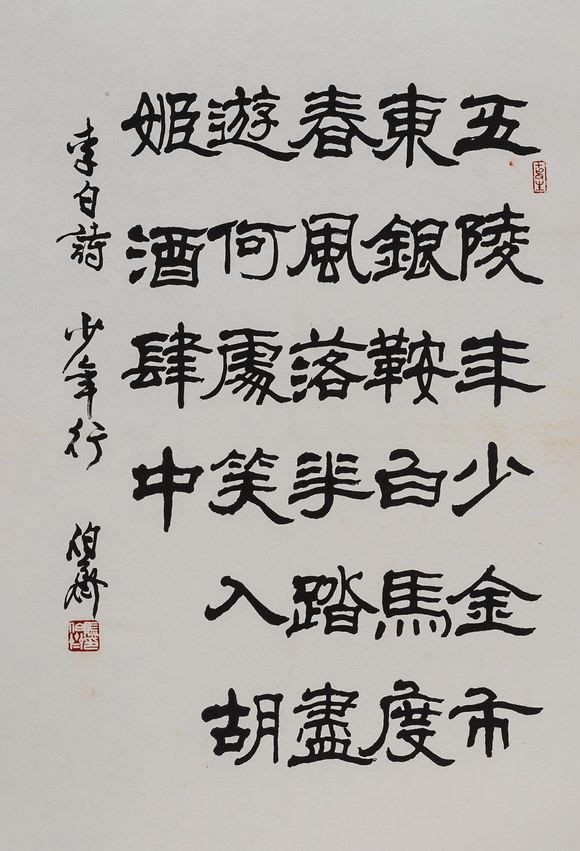 五陵年少金市
東銀鞍白馬度
春風落華踏盡
遊何處笑入胡
姬酒肆中
李白詩 少年行 伯